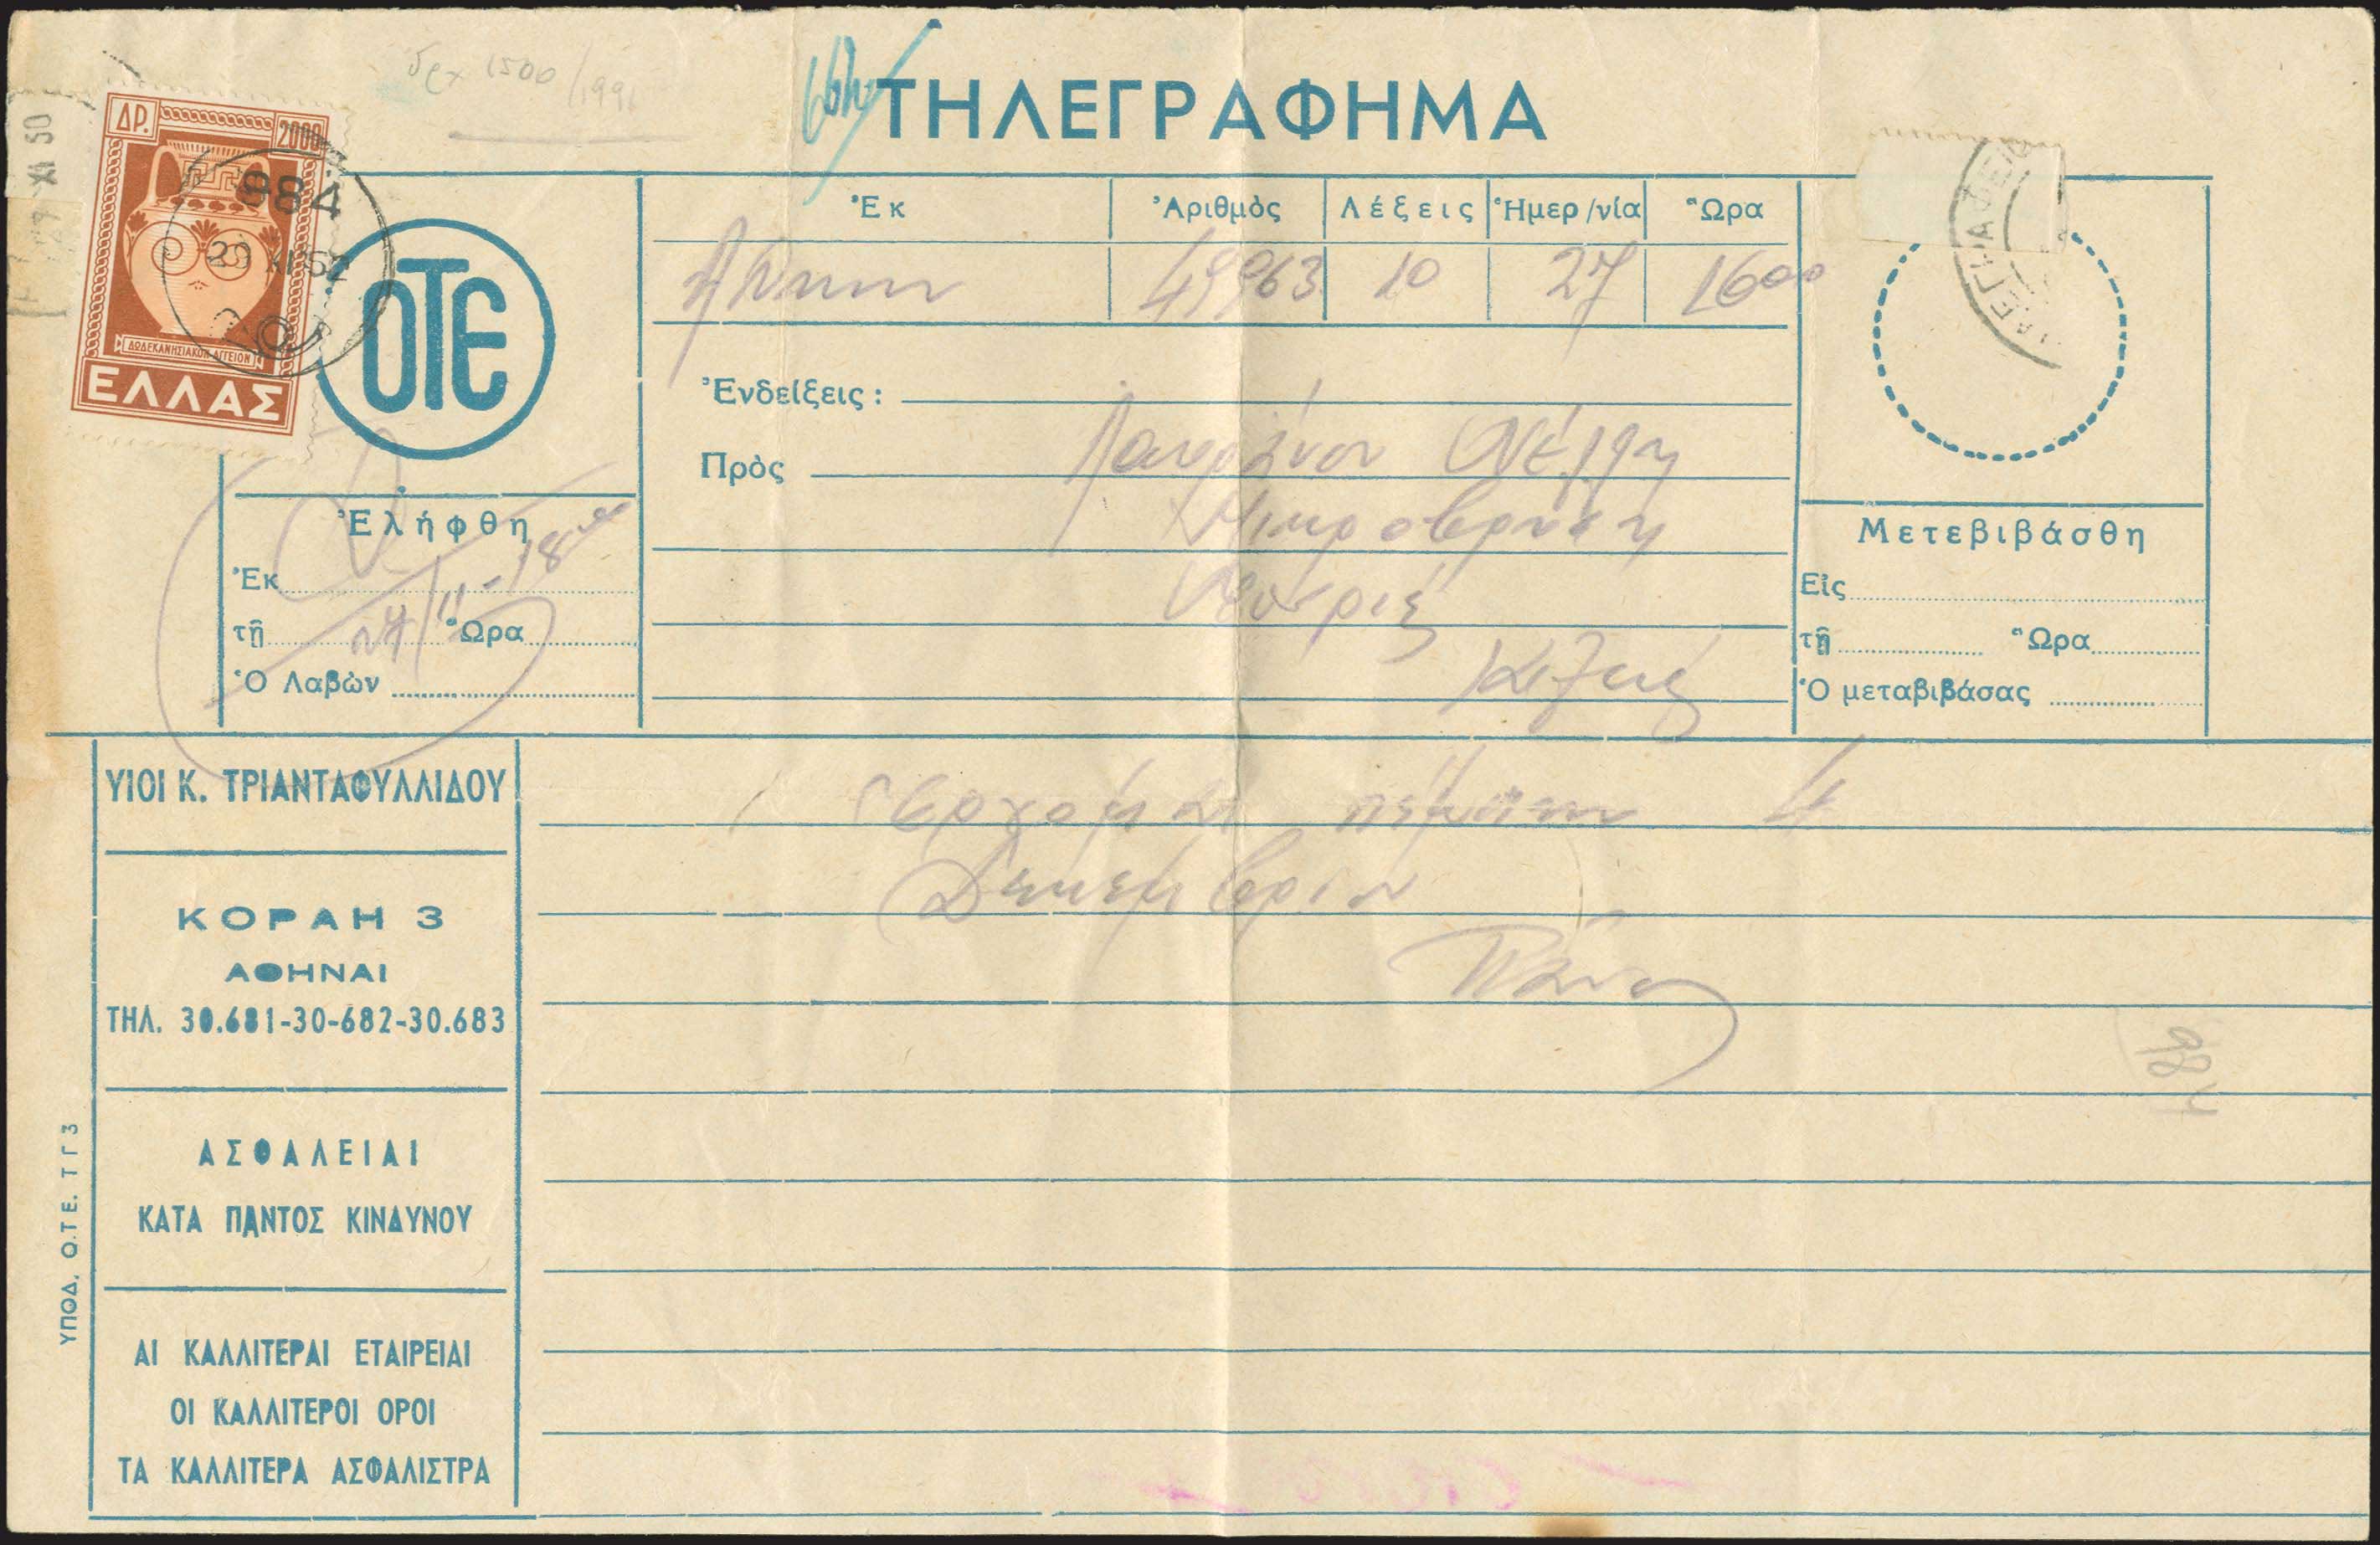 δρχ 1500/1991
ΤΗΛΕΓΡΑΦΗΜΑ
29 XI 50
ΔΡ. 2000
984
29 XI 52
ΔΩΔΕΚΑΝΗΣΙΑΚΟΝ ΑΓΓΕΙΟΝ
ΕΛΛΑΣ
ΟΤΕ
Ἐκ Ἀριθμὸς Λέξεις Ἡμερ/νία Ὥρα
49963 10 27 16 00
Ἐνδείξεις :
Πρὸς
Ἐλήφθη
Ἐκ
τῇ 27/11 Ὥρα 18
Ὁ Λαβὼν
Μετεβιβάσθη
Εἰς
τῇ Ὥρα
Ὁ μεταβιβάσας
ΥΙΟΙ Κ. ΤΡΙΑΝΤΑΦΥΛΛΙΔΟΥ
ΚΟΡΑΗ 3
ΑΘΗΝΑΙ
ΤΗΛ. 30.681-30-682-30.683
ΑΣΦΑΛΕΙΑΙ
ΚΑΤΑ ΠΑΝΤΟΣ ΚΙΝΔΥΝΟΥ
ΑΙ ΚΑΛΛΙΤΕΡΑΙ ΕΤΑΙΡΕΙΑΙ
ΟΙ ΚΑΛΛΙΤΕΡΟΙ ΟΡΟΙ
ΤΑ ΚΑΛΛΙΤΕΡΑ ΑΣΦΑΛΙΣΤΡΑ
ΥΠΟΔ. Ο.ΤΕ. ΤΓ3
Έρχομαι πέμπτην 4
Δεκεμβρίου
Πάνος
984